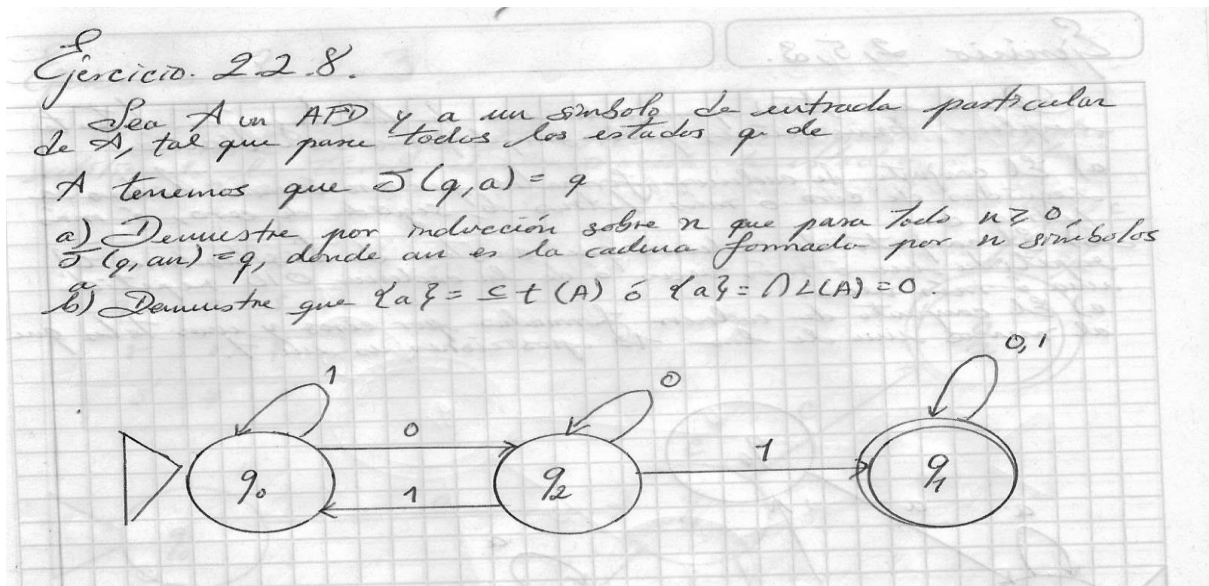 Ejercicio. 2.2.8.
Sea A un AFD y a un símbolo de entrada particular
de A, tal que para todos los estados q de
A tenemos que δ(q,a) = q
a) Demuestre por inducción sobre n que para todo n≥0,
δ(q,an) = q, donde an es la cadena formada por n símbolos
a
b) Demuestre que {a} = ⊆ t (A) ó {a} = ∩ L(A) = 0.
1
0
0,1
0
1
1
q0
q2
q1